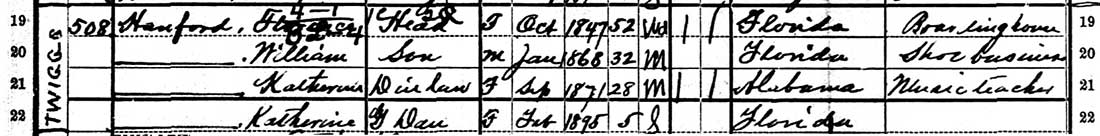 19 TWIGGS 508 Hanford, Head F Oct 1847 52 Wd 1 1 Florida Boardinghouse 19
20 William Son M Jan 1868 32 M Florida Shoe business 20
21 Katherine Dinlaw F Sep 1871 28 M 1 1 Alabama Music teacher 21
22 Katherine G Dau F Feb 1895 5 S Florida 22